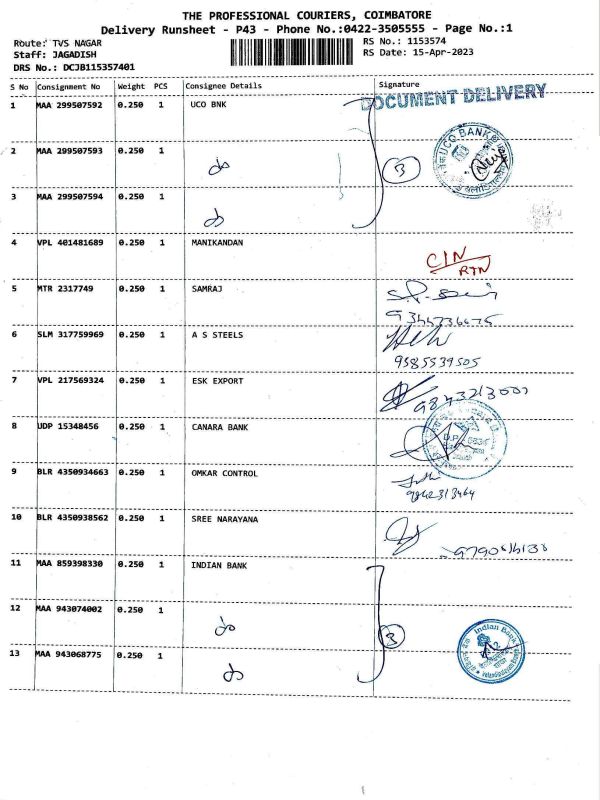 THE PROFESSIONAL COURIERS, COIMBATORE
Delivery Runsheet - P43 - Phone No.:0422-3505555 - Page No.:1
Route: TVS NAGAR RS No.: 1153574
Staff: JAGADISH RS Date: 15-Apr-2023
DRS No.: DCJB115357401
S No Consignment No Weight PCS Consignee Details Signature
DOCUMENT DELIVERY
1 MAA 299507592 0.250 1 UCO BNK
UCO BANK
2 MAA 299507593 0.250 1
do 3
3 MAA 299507594 0.250 1
do
4 VPL 401481689 0.250 1 MANIKANDAN
CIN
RTN
5 MTR 2317749 0.250 1 SAMRAJ
6 SLM 317759969 0.250 1 A S STEELS
9385539505
7 VPL 217569324 0.250 1 ESK EXPORT
8 UDP 15348456 0.250 1 CANARA BANK
9 BLR 4350934663 0.250 1 OMKAR CONTROL
9842313464
10 BLR 4350938562 0.250 1 SREE NARAYANA
11 MAA 859398330 0.250 1 INDIAN BANK
12 MAA 943074002 0.250 1
do 3
Indian Bank
13 MAA 943068775 0.250 1
do